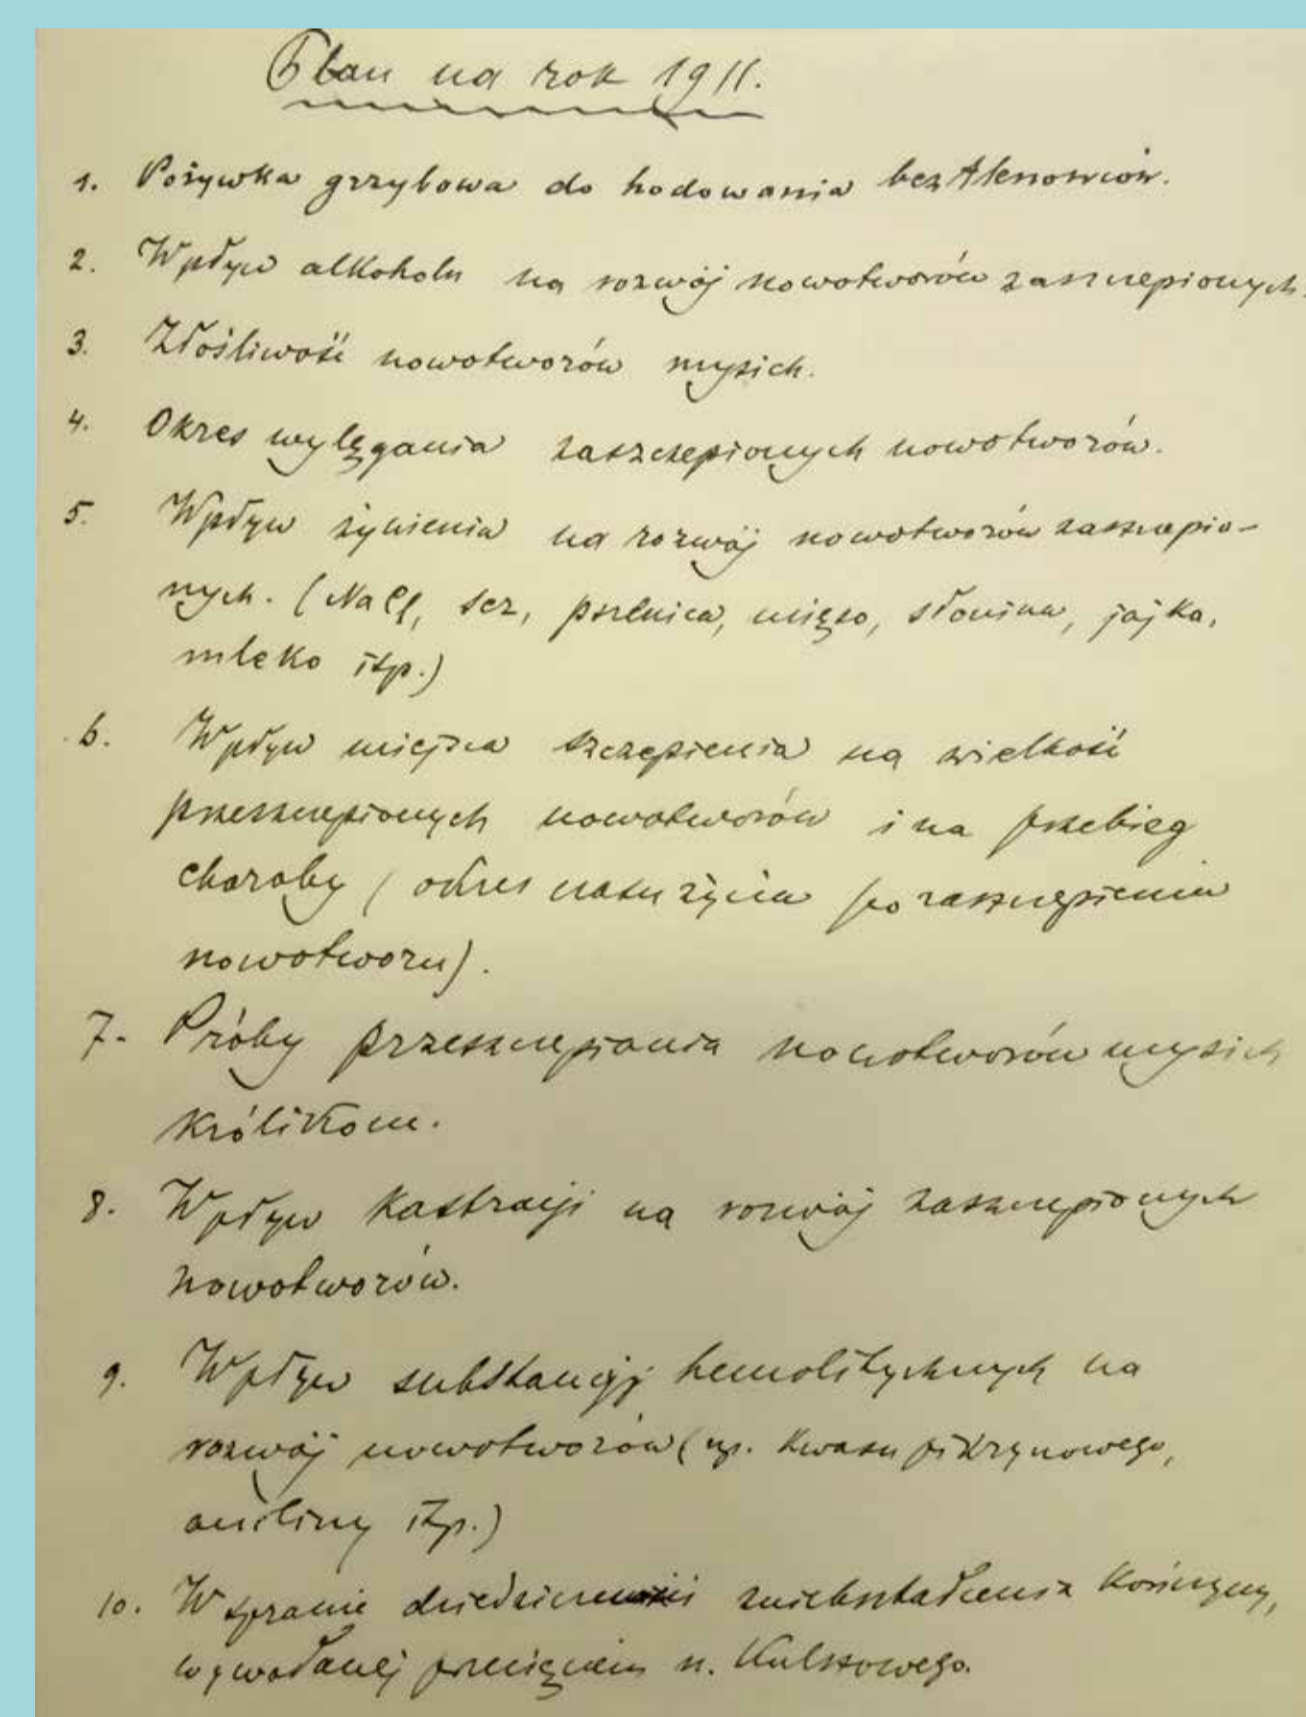 Plan na rok 1911.
1. Pożywka grzybowa do hodowania beztlenowców.
2. Wpływ alkoholu na rozwój nowotworów zaszczepionych.
3. Złośliwość nowotworów mysich.
4. Okres wylęgania zaszczepionych nowotworów.
5. Wpływ żywienia na rozwój nowotworów zaszczepio-
nych. (NaCl, ser, pszenica, mięso, słonina, jajka,
mleko itp.)
6. Wpływ miejsca szczepienia na wielkość
przeszczepionych nowotworów i na przebieg
choroby (okres czasu życia po zaszczepieniu
nowotworu).
7. Próby przeszczepiania nowotworów mysich
królikom.
8. Wpływ kastracji na rozwój zaszczepionych
nowotworów.
9. Wpływ substancyj hemolitycznych na
rozwój nowotworów (np. kwasu pikrynowego,
aniliny itp.)
10. W sprawie dziedziczności zniekształcenia kończyny,
wywołanej przecięciem n. kulszowego.